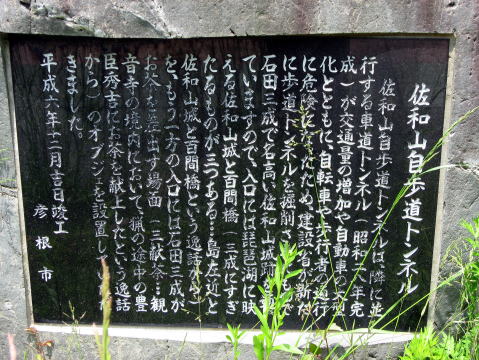 佐和山自歩道トンネル
佐和山自歩道トンネルは、隣に並
行する車道トンネル(昭和 年完
成)が交通量の増加や自動車の大型
化とともに、自転車や歩行者の通行
に危険になったため、建設省が新た
に歩道トンネルを掘削されたもので
石田三成で名高い佐和山城跡
ていますので、入口には琵琶湖に映
える佐和山城と百間橋(三成にすぎ
たるものが二つある…島左近と
佐和山城と百間橋という逸話から)
を、もう一方の入口には石田三成が
お茶を差出す場面(三献茶…観
音寺の境内において、猟の途中の豊
臣秀吉にお茶を献上したという逸話
から)のオブジェを設置し
きました。
平成六年十二月吉日竣工
彦根市